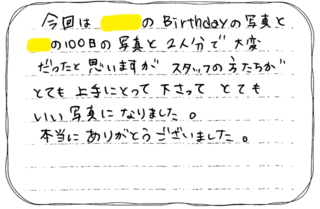 今回は のBirthdayの写真と
の100日の写真と2人分で大変
だったと思いますがスタッフの方たちが
とても上手にとって下さってとても
いい写真になりました。
本当にありがとうございました。